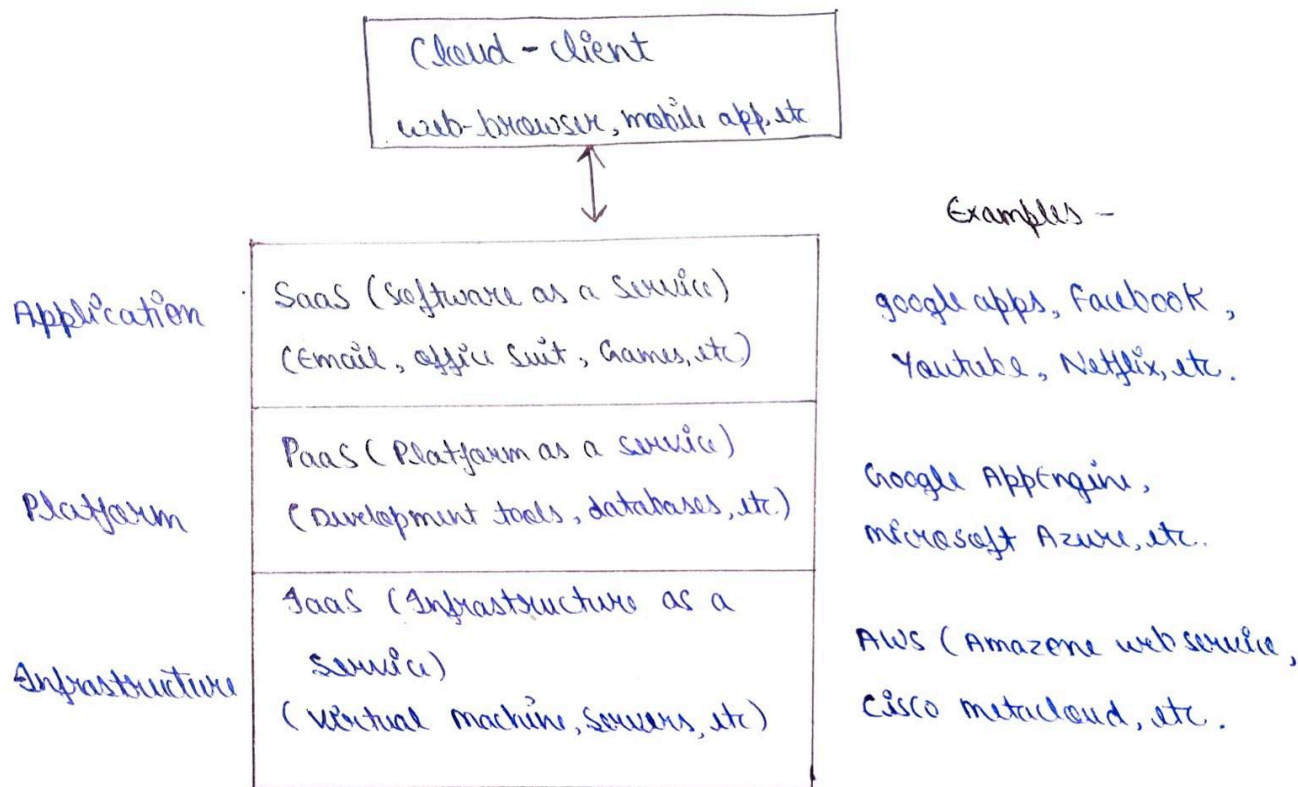 Cloud-client
web-browser, mobile app, etc
Examples -
Application
SaaS (Software as a Service)
(Email, office Suit, Games, etc)
google apps, Facebook,
Youtube, Netflix, etc.
Platform
PaaS (Platform as a service)
(Development tools, databases, etc.)
Google AppEngine,
microsoft Azure, etc.
Infrastructure
IaaS (Infrastructure as a
Service)
(Virtual machine, Servers, etc)
AWS (Amazone web service,
cisco metacloud, etc.